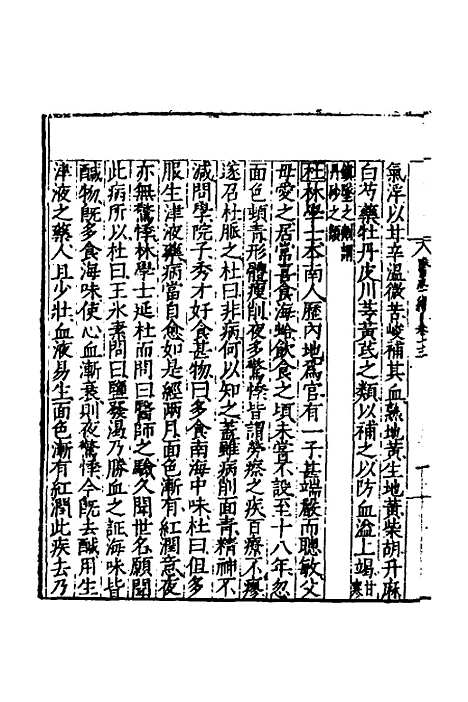 卷十三
氣浮以甘辛溫微苦峻補其血熟地黃生地黃柴胡升麻
白芍藥牡丹皮川芎黃芪之類以補之以防血溢上竭甘寒
鎮墜之劑謂
丹砂之類
杜林學士本南人歷內地為官有一子甚端嚴而聰敏父
母愛之居常喜食海蛤飲食之頃未嘗不設至十八年忽
面色頓青形體瘦削夜多驚悸皆謂勞瘵之疾百療不瘳
遂召杜脈之杜曰非病何以知之蓋雖病削面青精神不
減問學院子秀才好食甚物曰多食南海中味杜曰但多
服生津液藥病當自愈如是經兩月面色漸有紅潤意夜
亦無驚悸林學士延杜而問曰醫師之驗久聞世名願聞
此病所以杜曰王氷素問曰鹽發渴乃勝血之証海味皆
鹹物既多食海味使心血漸衰則夜驚悸今既去鹹用生
津液之藥人且少壯血液易生面色漸有紅潤此疾去乃